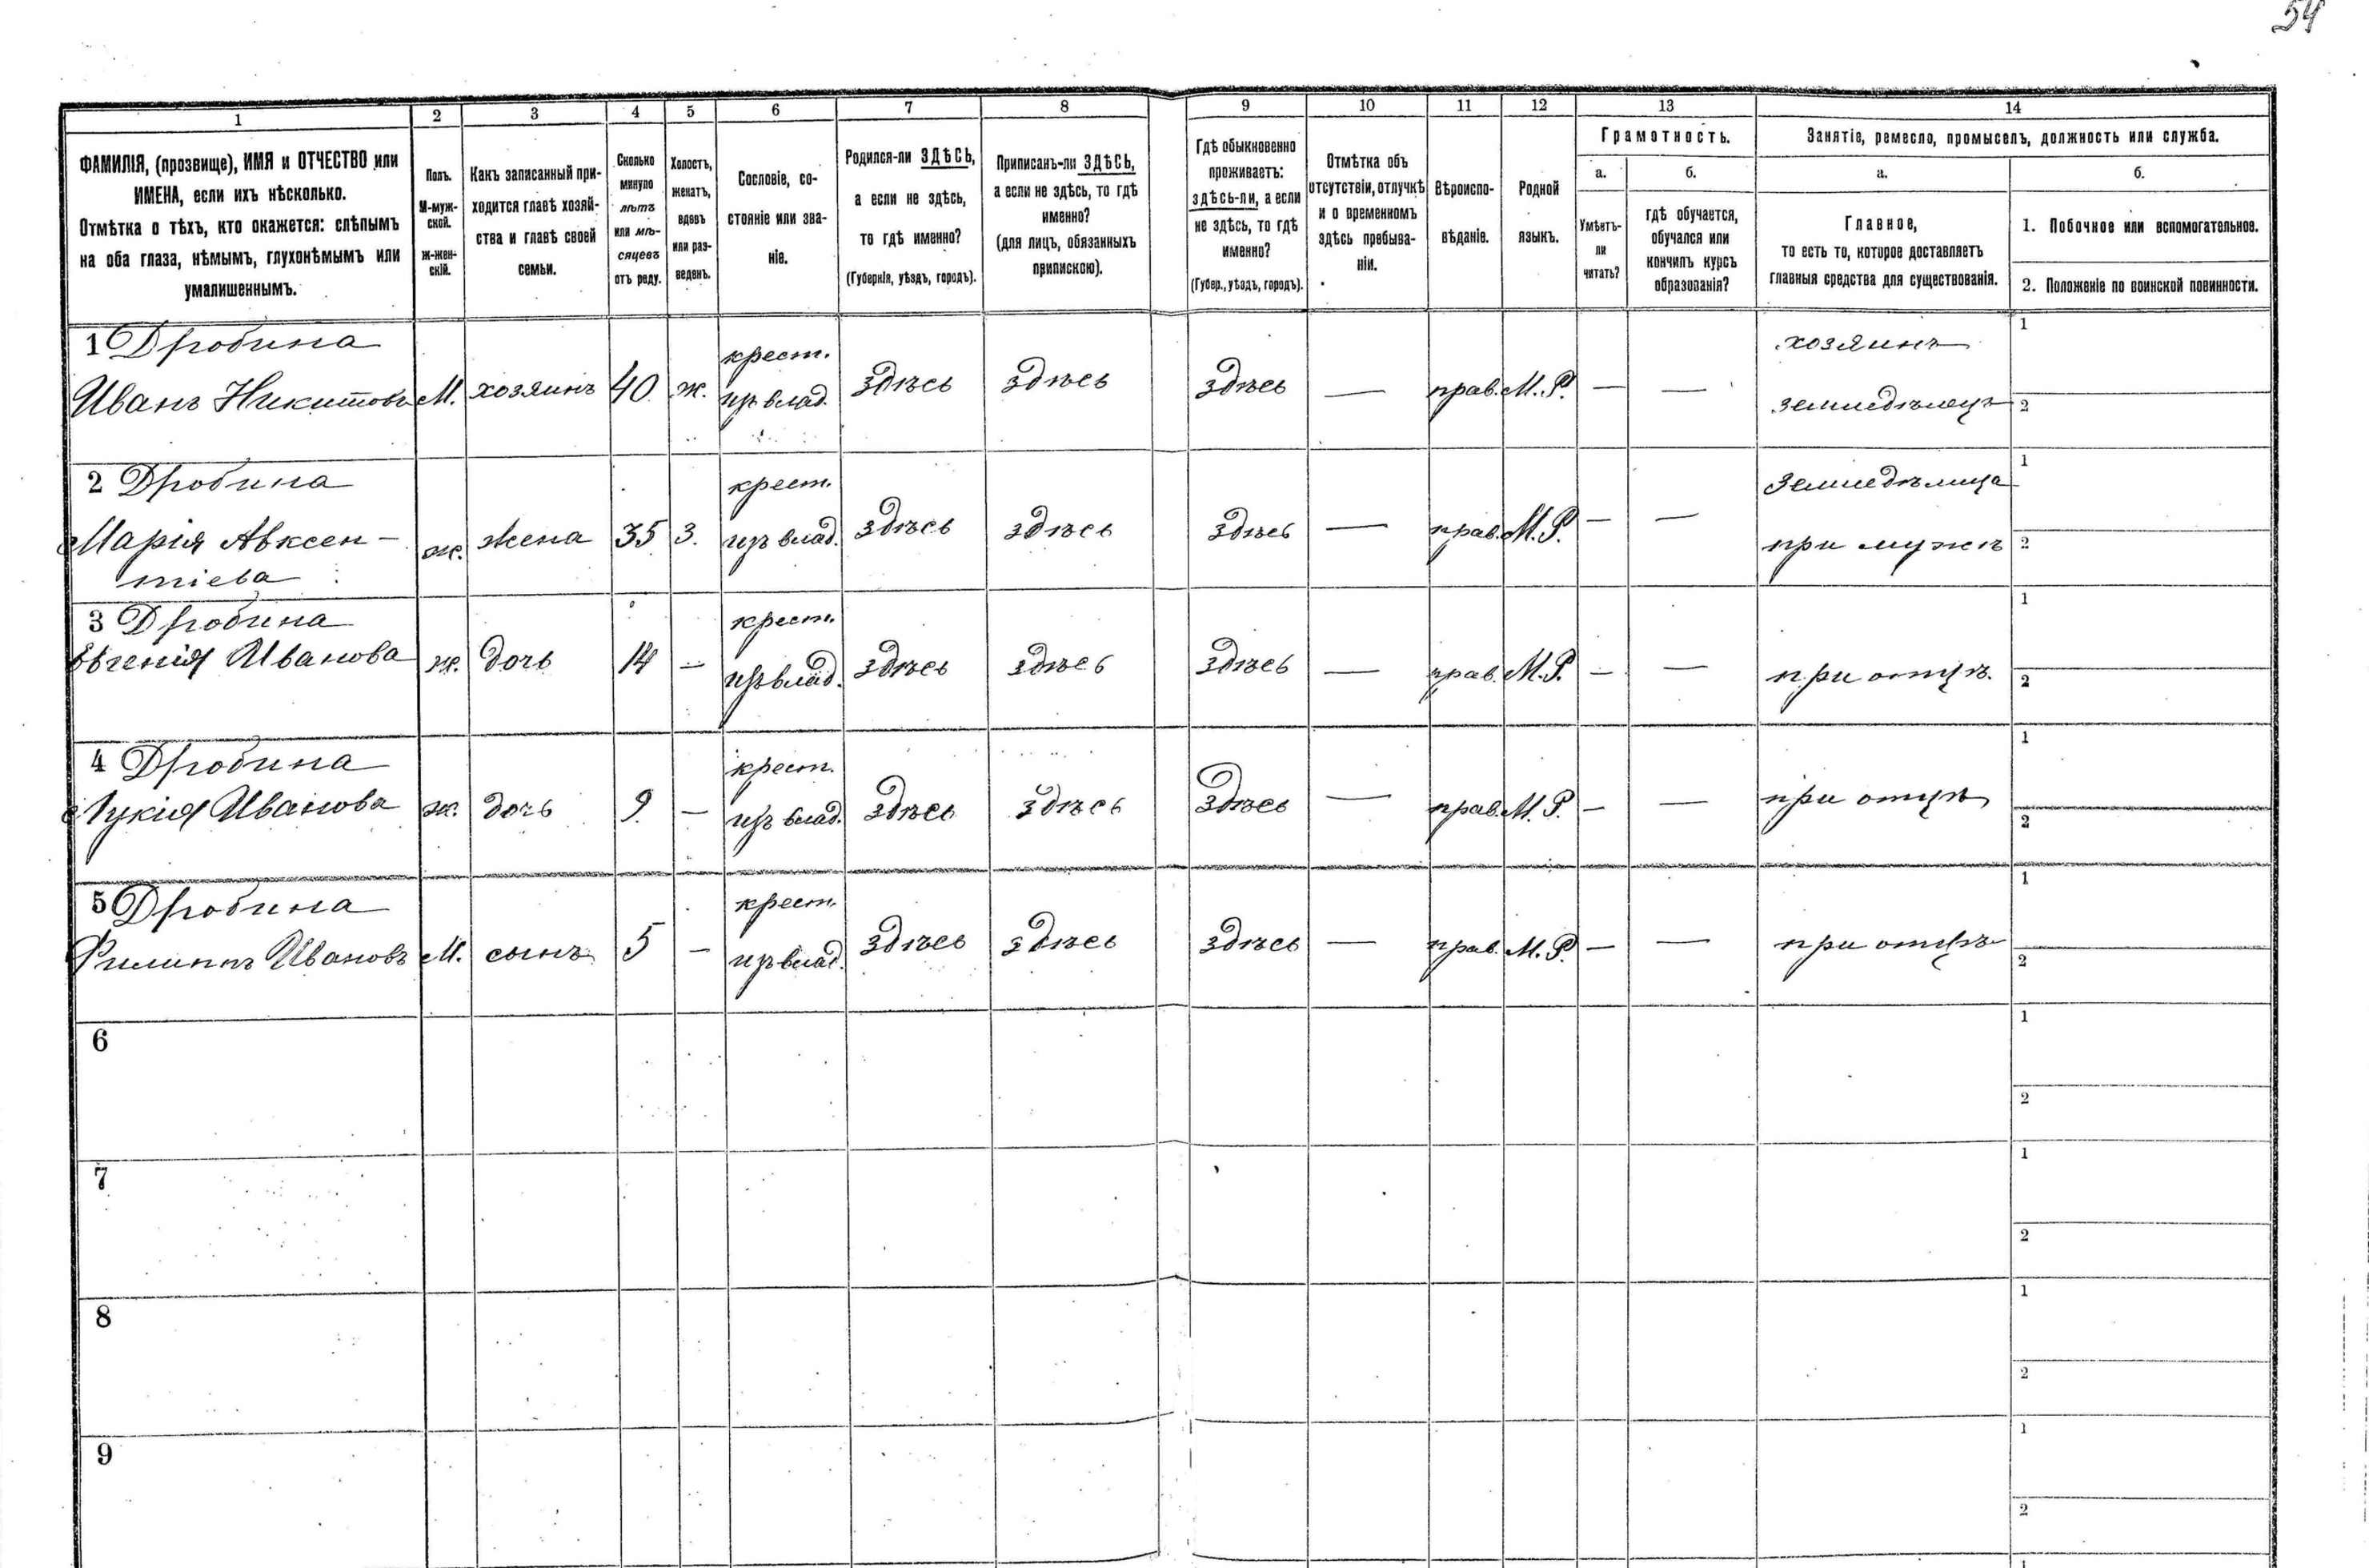 54
1 2 3 4 5 6 7 8 9 10 11 12 13 14
ФАМИЛІЯ, (прозвище), ИМЯ и ОТЧЕСТВО или
ИМЕНА, если ихъ нѣсколько.
Отмѣтка о тѣхъ, кто окажется: слѣпымъ
на оба глаза, нѣмымъ, глухонѣмымъ или
умалишеннымъ.
Полъ.
М-муж-
ской.
Ж-жен-
скій.
Какъ записанный при-
ходится главѣ хозяй-
ства и главѣ своей
семьи.
Сколько
минуло
лѣтъ
или мѣ-
сяцевъ
отъ роду.
Холостъ,
женатъ,
вдовъ
или раз-
веденъ.
Сословіе, со-
стояніе или зва-
ніе.
Родился-ли ЗДѢСЬ,
а если не здѣсь,
то гдѣ именно?
(Губернія, уѣздъ, городъ).
Приписанъ-ли ЗДѢСЬ,
а если не здѣсь, то гдѣ
именно?
(для лицъ, обязанныхъ
припискою).
Гдѣ обыкновенно
проживаетъ:
здѣсь-ли, а если
не здѣсь, то гдѣ
именно?
(Губер., уѣздъ, городъ).
Отмѣтка объ
отсутствіи, отлучкѣ
и о временномъ
здѣсь пребыва-
ніи.
Вѣроиспо-
вѣданіе.
Родной
языкъ.
Грамотность.
а.
Умѣетъ-
ли
читать?
б.
гдѣ обучается,
обучался или
кончилъ курсъ
образованія?
Занятіе, ремесло, промыселъ, должность или служба.
а.
Главное,
то есть то, которое доставляетъ
главныя средства для существованія.
б.
1. Побочное или вспомогательное.
2. Положеніе по воинской повинности.
1 Дробина крест. хозяинъ 1
Иванъ Никитовъ М. хозяинъ 40 ж. изъ влад. здѣсь здѣсь здѣсь — прав. М. Р. — — земледѣлецъ 2
2 Дробина крест. земледѣлица 1
Марія Авксен- ж. жена 35 З. изъ влад. здѣсь здѣсь здѣсь — прав. М. Р. — — при мужѣ 2
тіева
3 Дробина крест. 1
Евгенія Иванова ж. дочь 14 — изъ влад. здѣсь здѣсь здѣсь — прав. М. Р. — — при отцѣ. 2
4 Дробина крест. 1
Лукія Иванова ж. дочь 9 — изъ влад. здѣсь здѣсь здѣсь — прав. М. Р. — — при отцѣ 2
5 Дробина крест. 1
Филиппъ Ивановъ М. сынъ 5 — изъ влад. здѣсь здѣсь здѣсь — прав. М. Р. — — при отцѣ 2
6 1
2
7 1
2
8 1
2
9 1
2
1